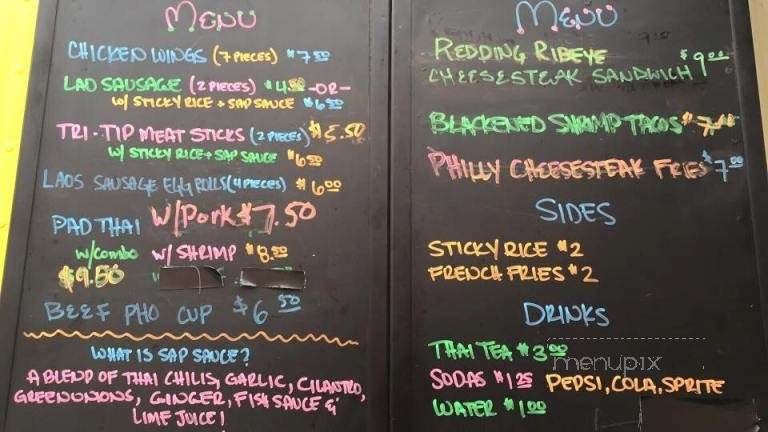 MENU
CHICKEN WINGS (7 PIECES) $7.50
LAO SAUSAGE (2 PIECES) $4.50 -OR-
W/ STICKY RICE + SAP SAUCE $6.50
TRI-TIP MEAT STICKS (2 PIECES) $5.50
W/ STICKY RICE + SAP SAUCE $6.50
LAOS SAUSAGE EGG ROLLS (4 PIECES) $6.00
PAD THAI W/Pork $7.50
W/COMBO W/ SHRIMP $8.50
$9.50
BEEF PHO CUP $6.50
WHAT IS SAP SAUCE?
A BLEND OF THAI CHILIS, GARLIC, CILANTRO,
GREEN ONIONS, GINGER, FISH SAUCE &
LIME JUICE!
MENU
REDDING RIBEYE $9.00
CHEESESTEAK SANDWICH
BLACKENED SHRIMP TACOS $7.00
PHILLY CHEESESTEAK FRIES $7.00
SIDES
STICKY RICE $2
FRENCH FRIES $2
DRINKS
THAI TEA $3.00
menupix
SODAS $1.25 PEPSI, COLA, SPRITE
WATER $1.00